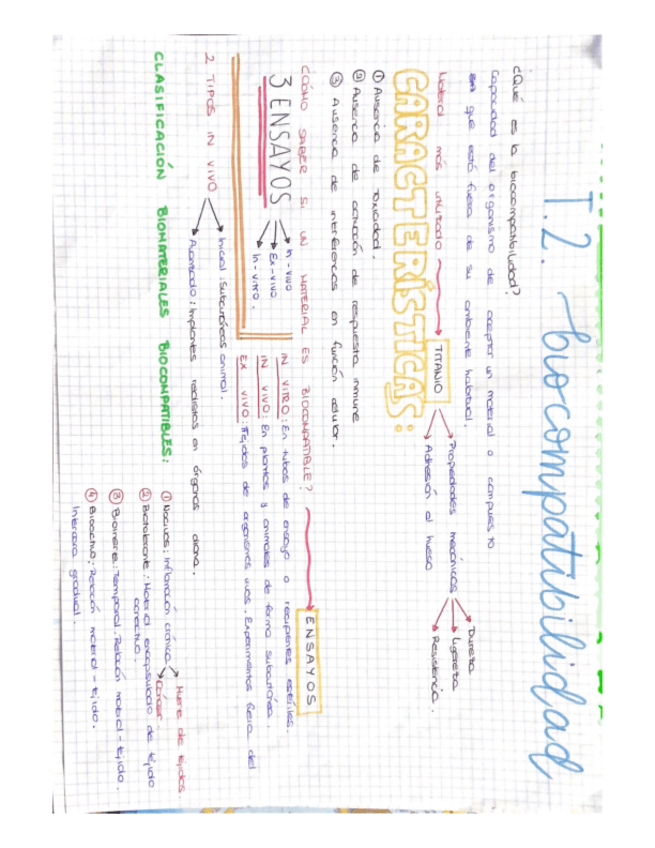 T.2. biocompatibilidad
¿Qué es la biocompatibilidad?
Capacidad del organismo de aceptar un material o compuesto
que está fuera de su ambiente habitual.
Material más utilizado → TITANIO
Propiedades mecánicas
Dureza
Ligereza
Resistencia.
Adhesión al hueso
CARACTERÍSTICAS:
① Ausencia de toxicidad.
② Ausencia de activación de respuesta inmune
③ Ausencia de interferencias en función celular.
¿CÓMO SABER SI UN MATERIAL ES BIOCOMPATIBLE? → ENSAYOS
3 ENSAYOS
In-vivo
Ex-vivo
In-vitro.
IN VITRO: En tubos de ensayo o recipientes estériles.
IN VIVO: En plantas y animales de forma subcutánea.
EX VIVO: Tejidos de organismos vivos. Experimentos fuera del
2 TIPOS IN VIVO
Inicial: Subcutáneos animal.
Avanzado: Implantes realistas en órganos diana.
CLASIFICACIÓN BIOMATERIALES BIOCOMPATIBLES:
① Nocivos: Inflamación crónica
Muerte de tejidos.
Cáncer.
② Biotolerante: Material encapsulado de tejido
conectivo.
③ Bioinerte: Temporal. Relación material-tejido.
④ Bioactivo: Relación material-tejido.
Interfara gradual.